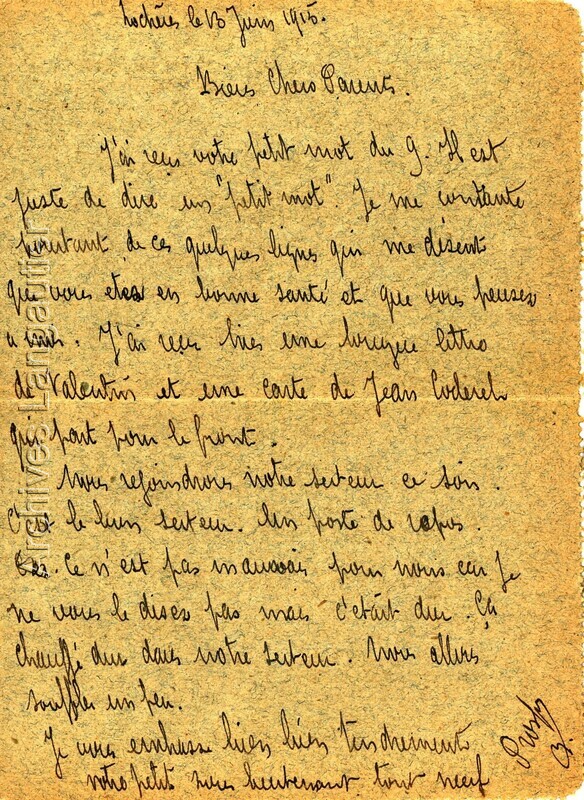 Lochères le 13 Juin 1915.
Biens Chers Parents.
J'ai reçu votre petit mot du 9. Il est
juste de dire un "petit mot". Je me contente
pourtant de ces quelques lignes qui me disent
que vous etes en bonne santé et que vous pensez
a moi. J'ai reçu hier une longue lettre
de Valentin et une carte de Jean Coderch
qui part pour le front.
Nous rejoindrons notre secteur ce soir.
C'est le bon secteur. Un poste de repos.
Ce n'est pas mauvais pour nous car je
ne vous le disais pas mais c'était dur. Ça
chauffé dur dans notre secteur. Nous allons
souffler un peu.
Je vous embrasse bien bien tendrement
votre petit sous lieutenant tout neuf
Archives Langautier